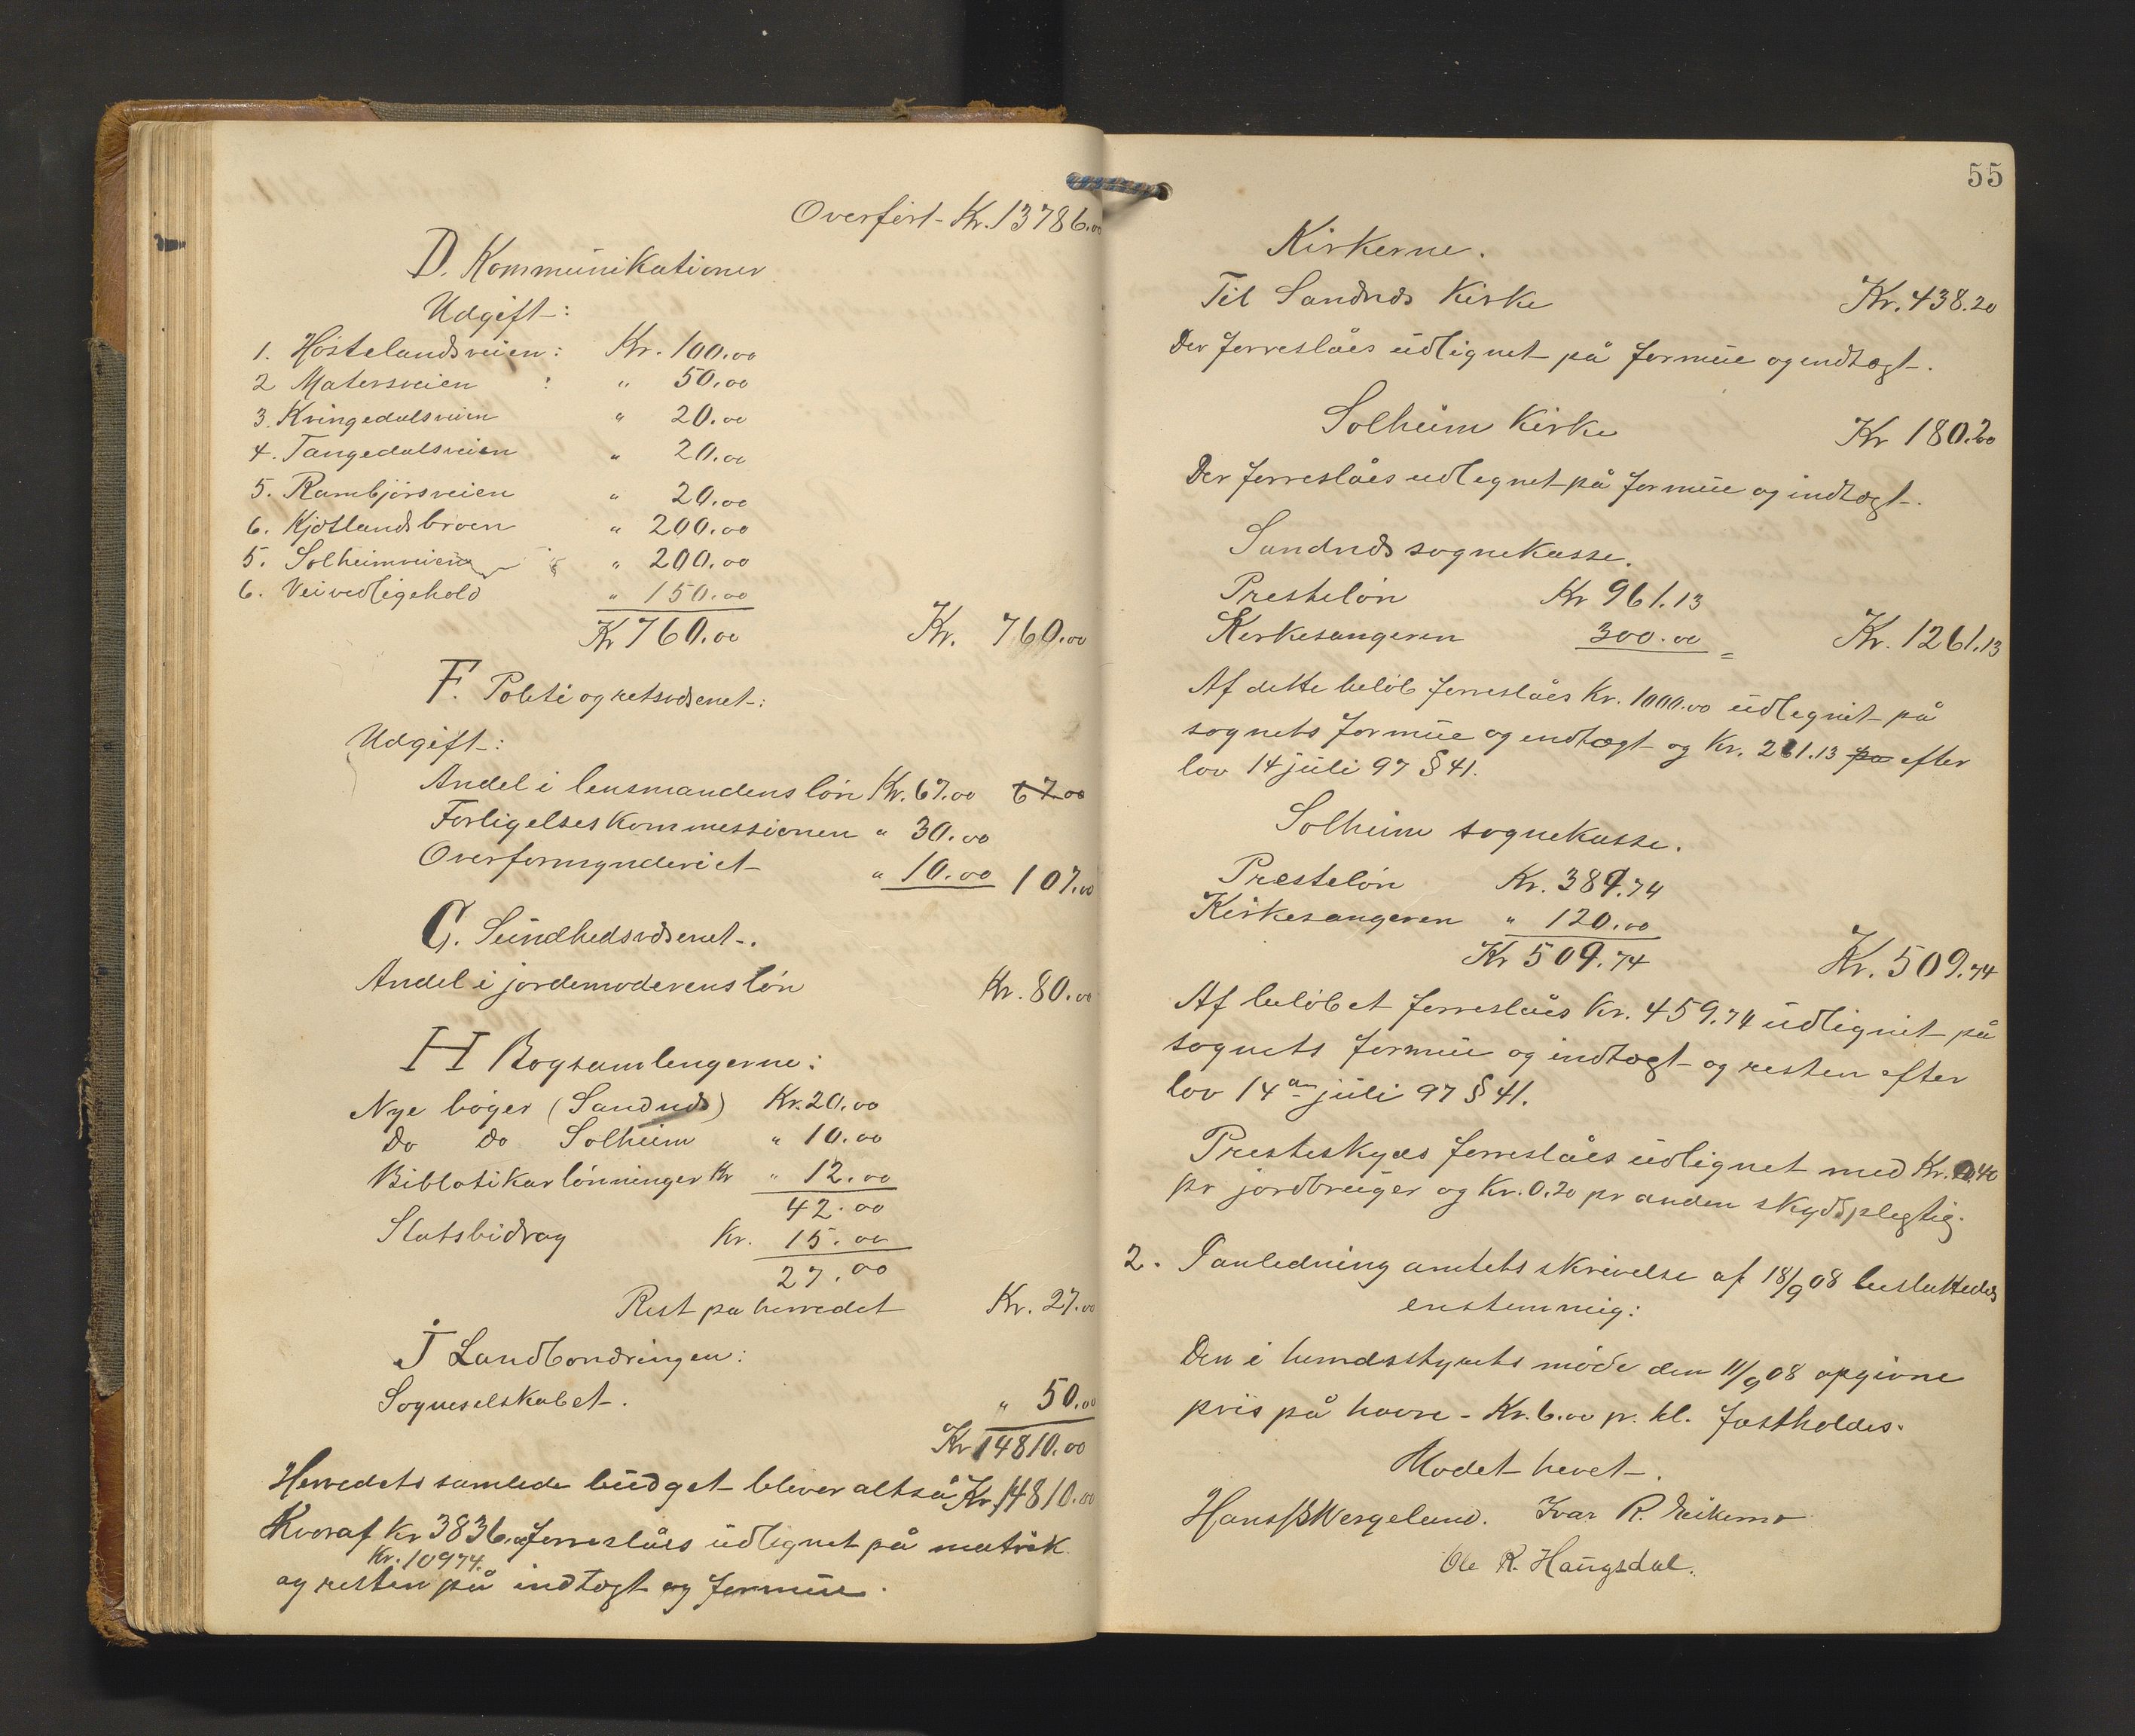 Overført Kr. 13786.00
D. Kommunikationer
Udgift:
1. Høstelandsveien: Kr. 100.00
2 Matersveien : " 50.00
3. Kringedalsveien " 20.00
4. Tangedalsveien " 20.00
5. Rambjørsveien " 20.00
6. Kjøtlandsbroen " 200.00
5. Solheimveien " 200.00
6. Veivedligehold " 150.00
Kr 760.00 Kr. 760.00
F. Politi og retsvæsenet:
Udgift:
Andel i lensmandens løn Kr. 67.00 67.00
Forligelseskommessionen " 30.00
Overformynderiet " 10.00 107.00
G. Sundhedsvæsenet.
Andel i jordemoderens løn Kr. 80.00
H Bogsamlengerne:
Nye bøger (Sandnæs) Kr. 20.00
Do Do Solheim " 10.00
Biblotikarlønninger Kr " 12.00
42.00
Statsbidrag Kr. 15.00
27.00
Rest pa herredet Kr. 27.00
J Landbondringen:
Sogneselskabet. " 50.00
Kr 14810.00
Herredets samlede budget bliver altså Kr. 14810.00
Hvoraf Kr 3836.00 forreslåes udlignet på matrik.
Kr. 10974.
og resten på indtægt og formue.
55
Kirkerne.
Til Sandnæs Kirke Kr. 438.20
Der forreslåes udlignet på formue og endtægt.
Solheim Kirke Kr 180.20
Der forreslåes udlegnet på formue og indtægt.
Sandnæs sognekasse.
Presteløn Kr 961.13
Kirkesangeren 300.00 = Kr. 1261.13
Af dette beløb forreslåes Kr. 1000.00 udlegnet på
sognets formue og endtægt og Kr. 261.13 pa efter
lov 14 juli 97 § 41.
Solheim sognekasse.
Presteløn Kr. 389.74
Kirkesangeren " 120.00
Kr 509.74 Kr. 509.74
Af beløbet forreslåes Kr. 459.74 udlignet på
sognets formue og indtægt og resten efter
lov 14de juli 97 § 41.
Presteskyds forreslåes udlignet med Kr. 0.40
pr jordbruger og Kr. 0.20 pr anden skydsplegtig.
2. I anledning amtets skrivelse af 18/9 08 besluttedes
enstemmig:
Den i herredsstyrets møde den 11/9 08 opgivne
pris på havre - Kr. 6.00 pr. hl. fastholdes.
Mødet hevet.
Hans B Wergeland. Ivar R. Eikemo
Ole R. Haugsdal.